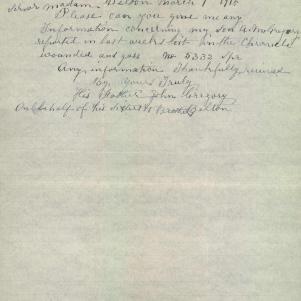 Dear madam Belton March 1 1918
Please can you give me any
Information concerning my son A. McGregory
reported in last weeks list in the Chronicle
wounded and gass No 5333 Spr
Any information Thankfully received
by yours Truly
His Father John Gregory
On behalf of his Sister & Brother Belton